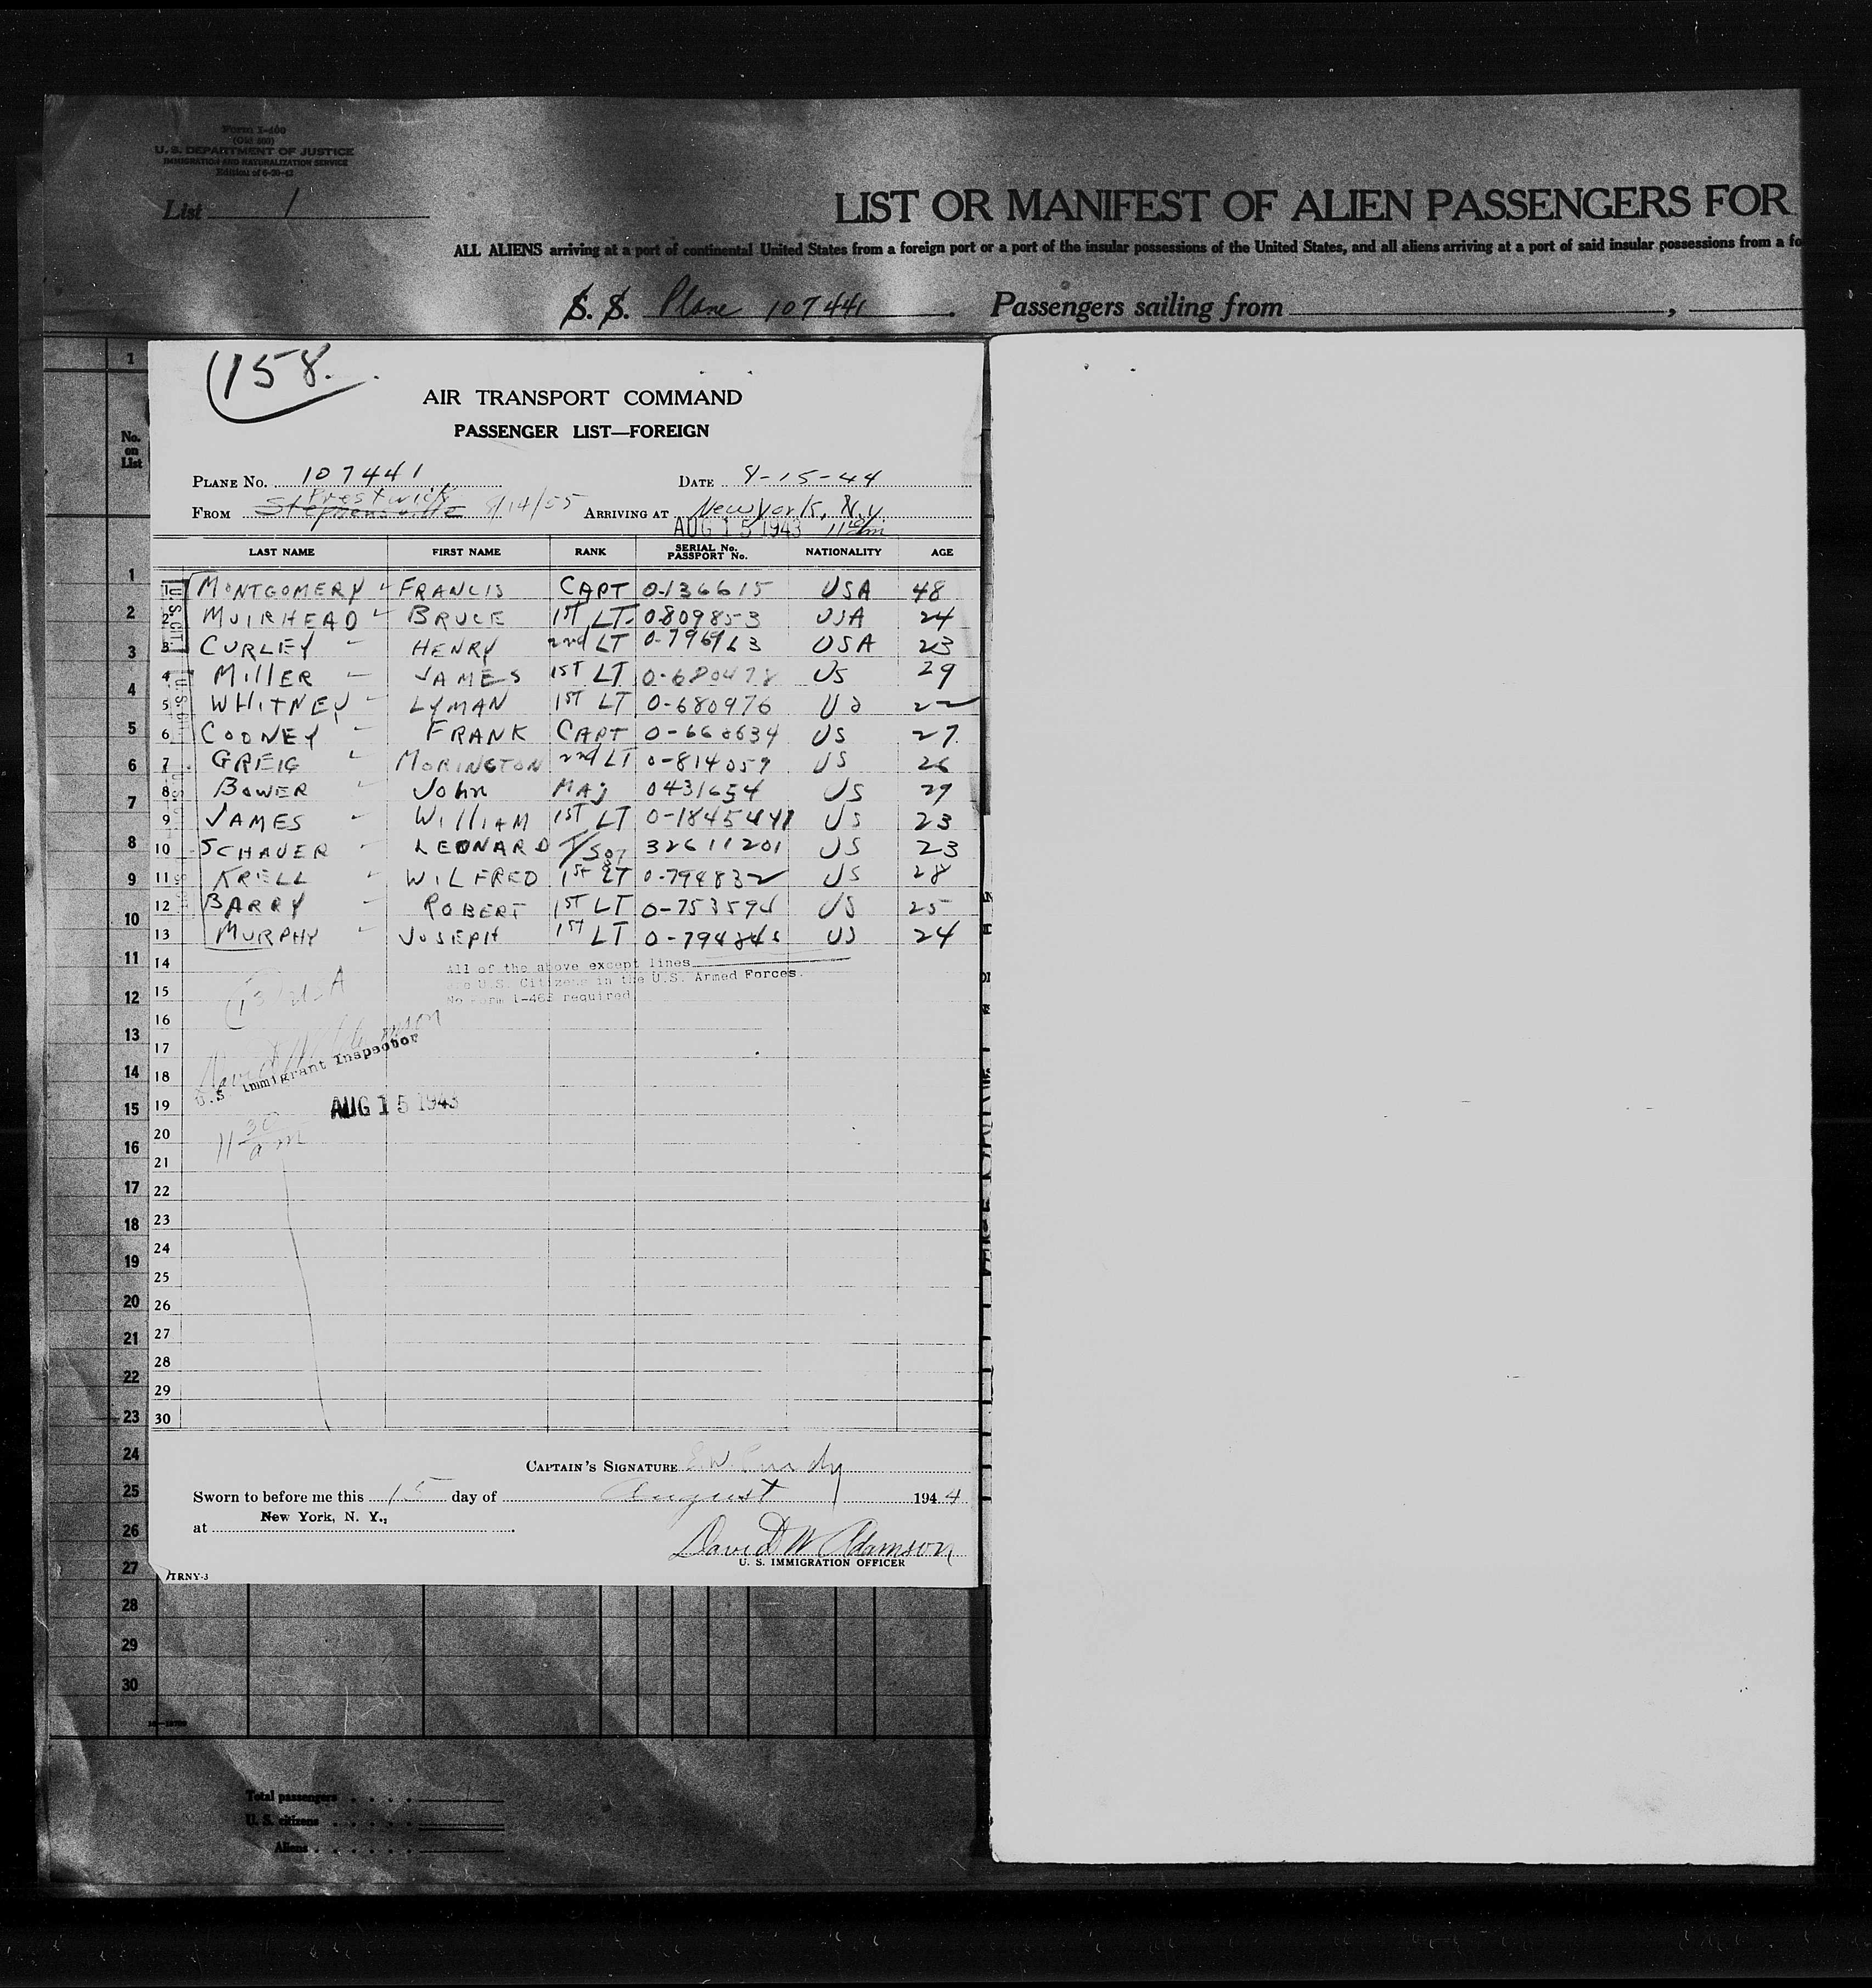 Form I-400
(Old 400)
U. S. DEPARTMENT OF JUSTICE
IMMIGRATION AND NATURALIZATION SERVICE
Edition of 6-30-43
List 1
LIST OR MANIFEST OF ALIEN PASSENGERS FOR
ALL ALIENS arriving at a port of continental United States from a foreign port or a port of the insular possessions of the United States, and all aliens arriving at a port of said insular possessions from a fo
S. S. Plane 107441 . Passengers sailing from ,
158.
AIR TRANSPORT COMMAND
PASSENGER LIST—FOREIGN
PLANE NO. 107441 DATE 8-15-44
Prestwick
FROM Stephensville 8/14/55 ARRIVING AT New York, N.Y.
AUG 15 1943
LAST NAME FIRST NAME RANK SERIAL No. PASSPORT No. NATIONALITY AGE
No. on List
1 MONTGOMERY FRANCIS CAPT 0-136615 USA 48
2 MUIRHEAD BRUCE 1ST LT 0809853 USA 24
3 CURLEY HENRY 2nd LT USA 23
4 MillER JAMES 1ST LT 0-680478 US 29
5 WHITNEY LYMAN 1ST LT 0-680976 US 22
6 COONEY FRANK CAPT 0-668634 US 27
7 GREIG MORINGTON 2nd LT 0-814059 US 26
8 BOWER John MAJ 0431654 US 29
9 JAMES WilliAM 1ST LT US 23
10 SCHAUER LEONARD T/SGT 32611201 US 23
11 KRELL WILFRED 1st LT 0-794832 US 28
12 BARRY ROBERT 1ST LT 0-753594 US 25
13 MURPHY JOSEPH 1ST LT US 24
14
All of the above except lines
are U.S. Citizens in the U.S. Armed Forces.
No Form I-466 required
15
16
17
U.S. Immigrant Inspector
18
19 AUG 15 1943
20
11 30 am
21
22
23
24
25
26
27
28
29
30
CAPTAIN'S SIGNATURE
Sworn to before me this 15 day of August 1944
at New York, N. Y.,
David W Adamson
U. S. IMMIGRATION OFFICER
TRNY-3
1
2
3
4
5
6
7
8
9
10
11
12
13
14
15
16
17
18
19
20
21
22
23
24
25
26
27
28
29
30
Total passengers
U. S. citizens
Aliens